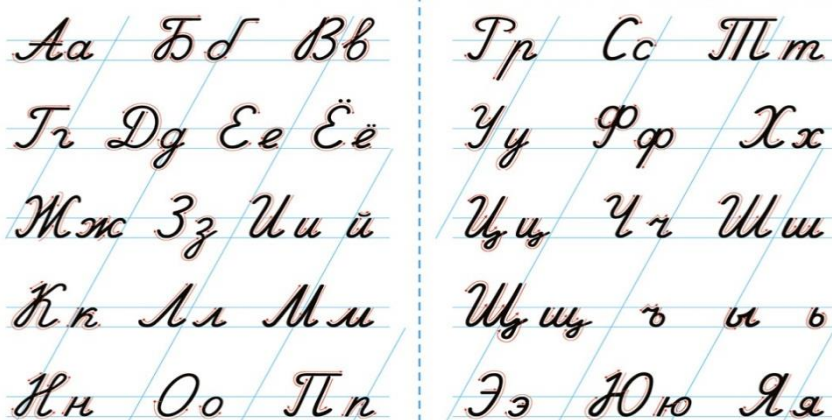 Аа Бб Вв
Гг Дд Ее Ёё
Жж Зз Ии й
Кк Лл Мм
Нн Оо Пп
Рр Сс Тт
Уу Фф Хх
Цц Чч Шш
Щщ ъ ы ь
Ээ Юю Яя